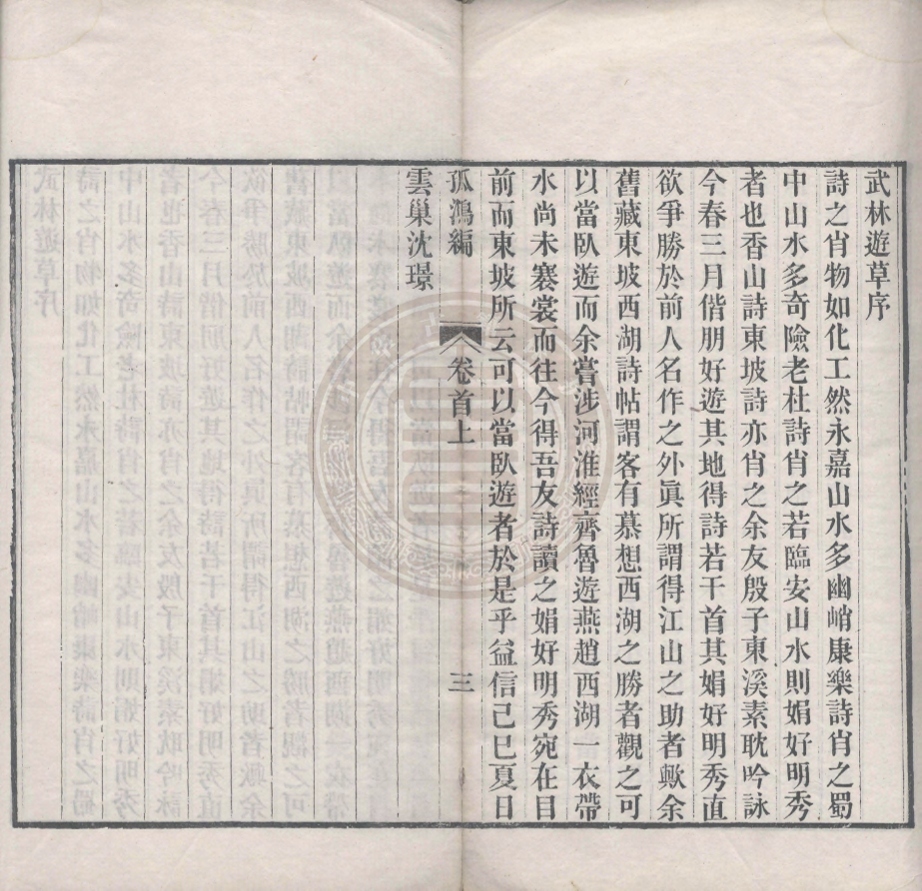 武林遊草序
詩之肖物如化工然永嘉山水多幽峭康樂詩肖之蜀
中山水多奇險老杜詩肖之若臨安山水則娟好明秀
者也香山詩東坡詩亦肖之余友殷子東溪素耽吟詠
今春三月偕朋好遊其地得詩若干首其娟好明秀直
欲爭勝於前人名作之外眞所謂得江山之助者歟余
舊藏東坡西湖詩帖謂客有慕想西湖之勝者觀之可
以當臥遊而余嘗涉河淮經齊魯遊燕趙西湖一衣帶
水尚未褰裳而往今得吾友詩讀之娟好明秀宛在目
前而東坡所云可以當臥遊者於是乎益信己巳夏日
孤鴻編 卷首上 三
雲巢沈璟